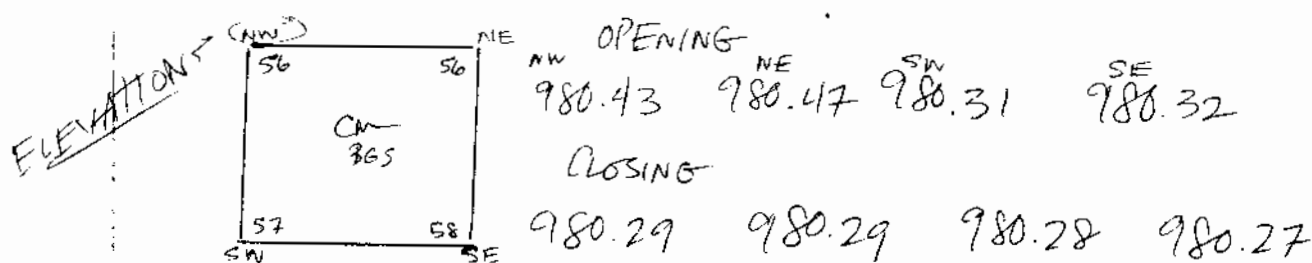 ELEVATIONS
(NW) NE
56 56
CM
BGS
57 58
SW SE
OPENING
NW NE SW SE
980.43 980.47 980.31 980.32
CLOSING
980.29 980.29 980.28 980.27